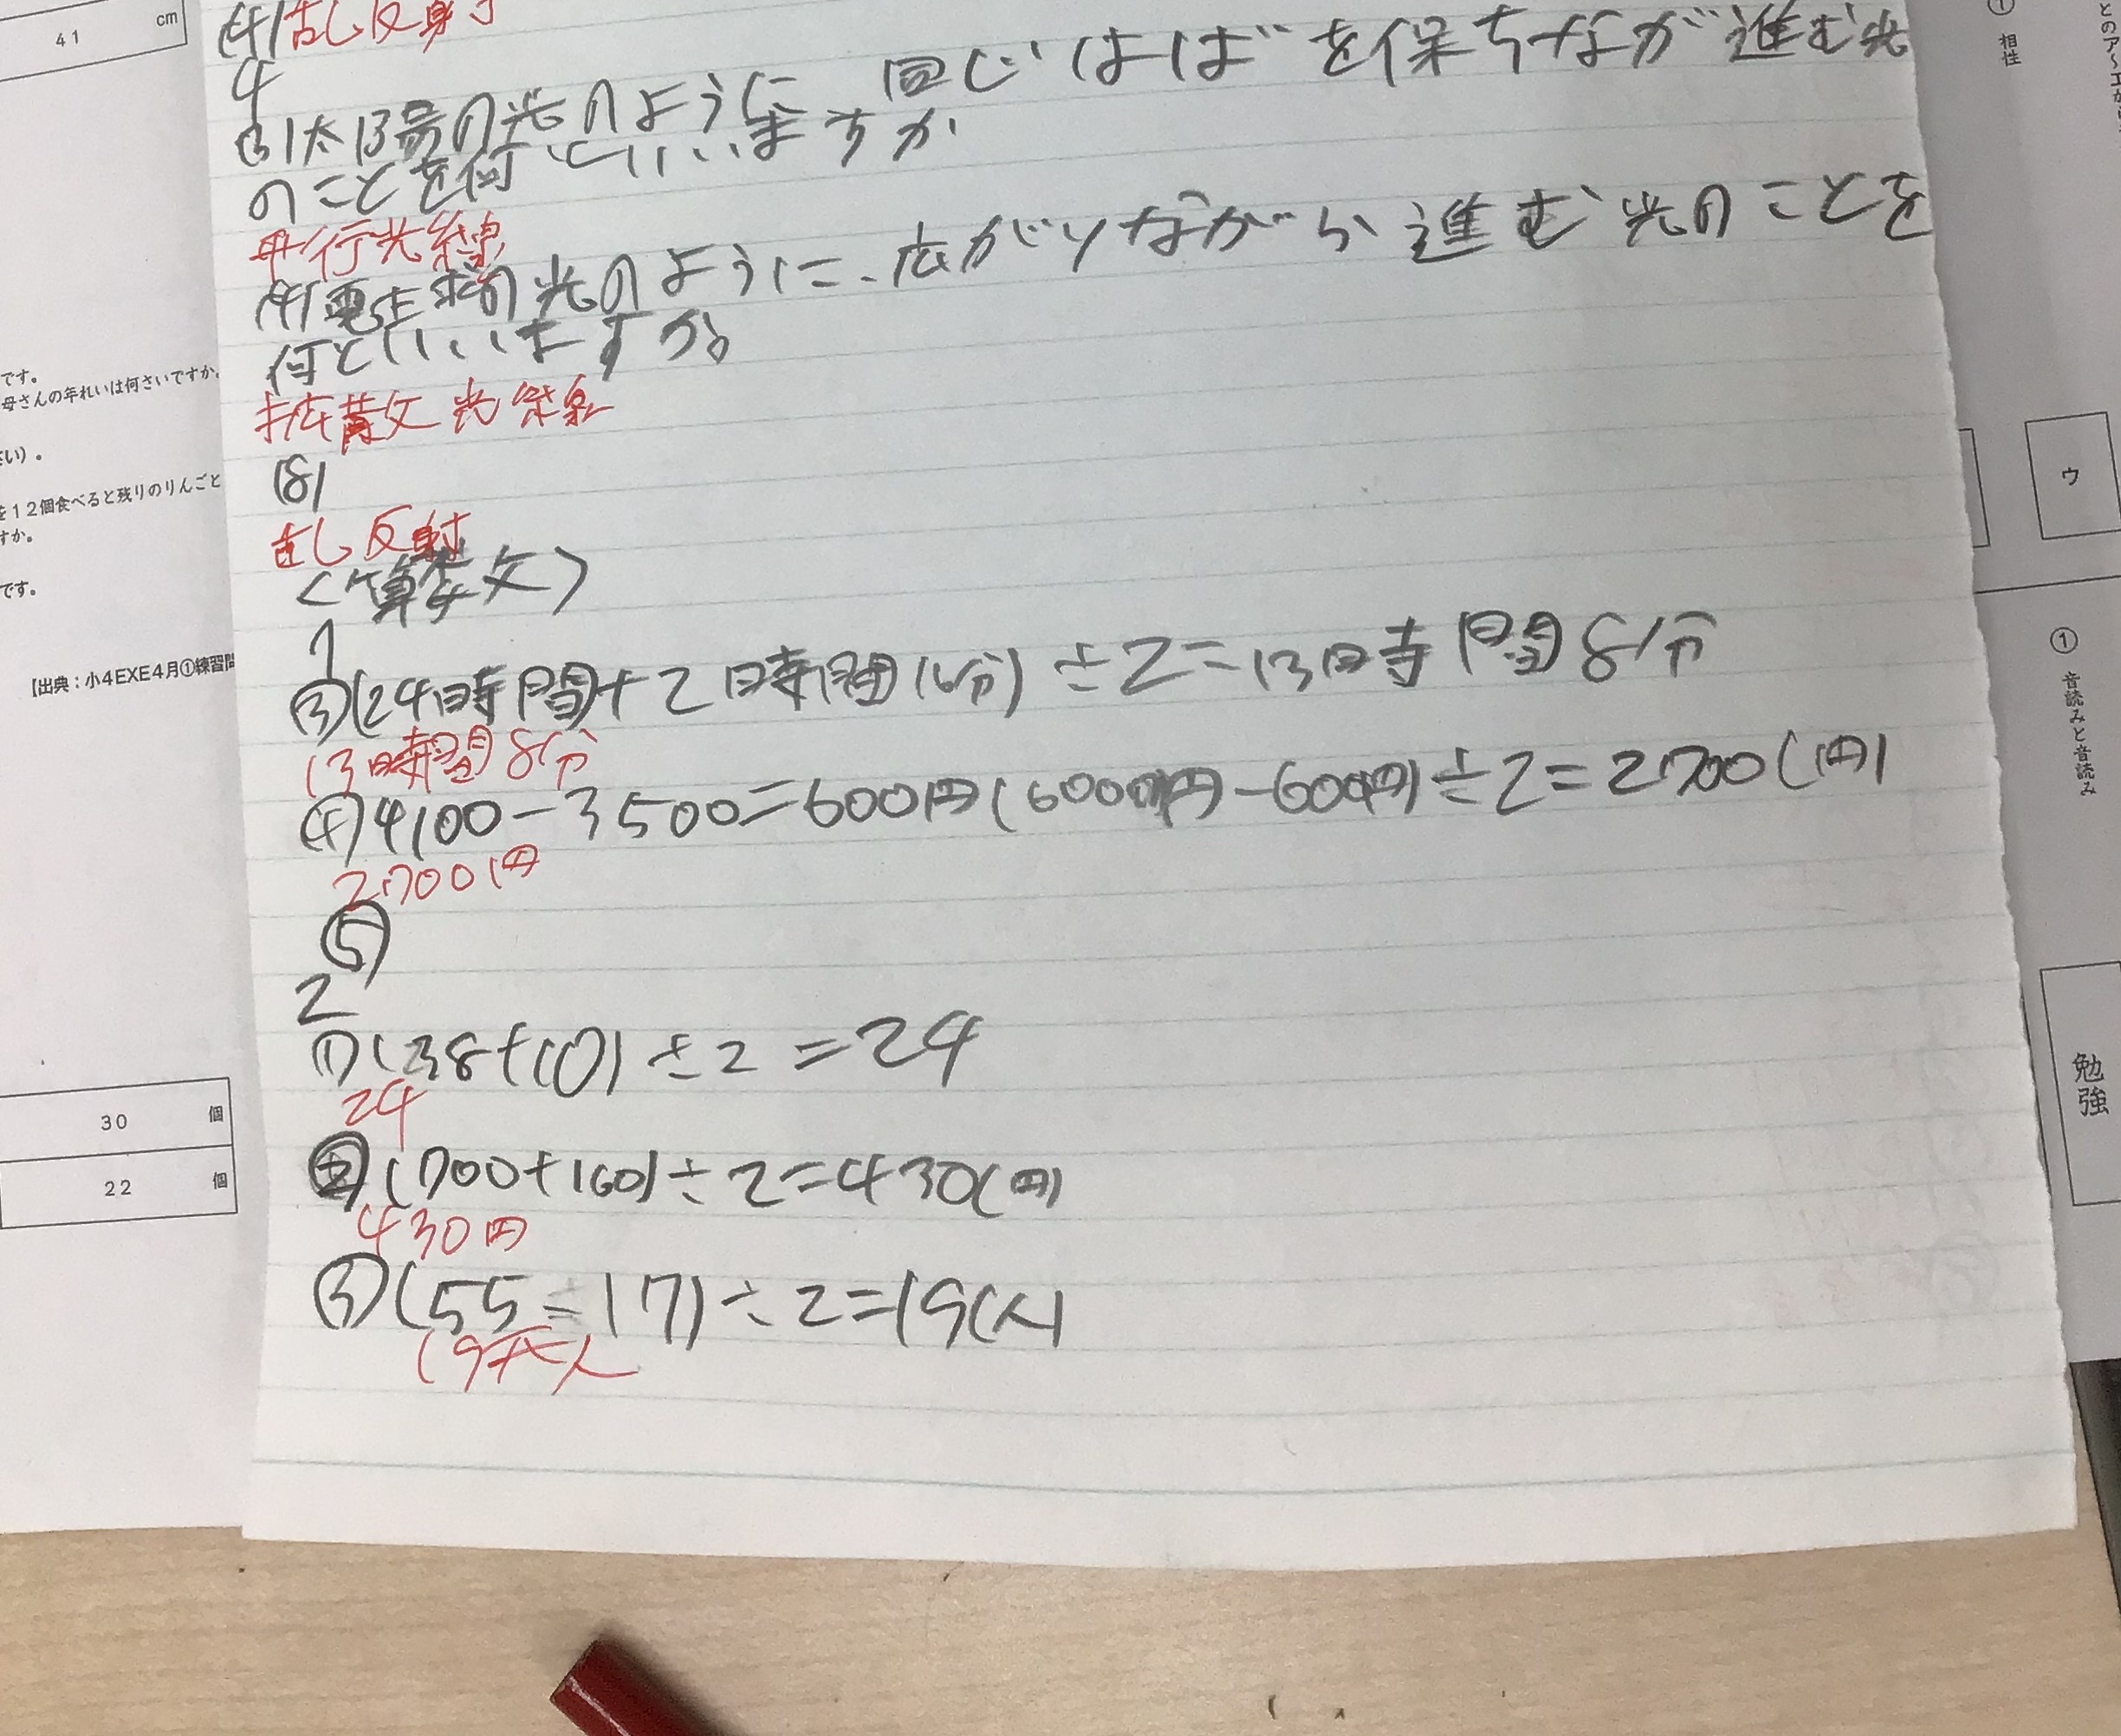 41 cm
です。
母さんの年れいは何さいですか。
さい)。
を12個食べると残りのりんごと
すか。
です。
【出典:小4EXE4月①練習問
30 個
22 個
(4)乱反射
4
(3)太陽の光のように 同じはばを保ちなが進む光
のことを何といいますか
平行光線
(4)電球の光のように、広がりながら進む光のことを
何といいますか
拡散光線
(8)
乱反射
<算数>
1
③(24時間+2時間16分)÷2=13時間8分
13時間8分
④4100-3500=600円(6000円-600円)÷2=2700(円)
2700円
⑤
2
①(38+10)÷2=24
24
②(700+160)÷2=430(円)
430円
③(55-17)÷2=19(人)
19人
① 相性
ウ
① 音読みと音読み
勉強